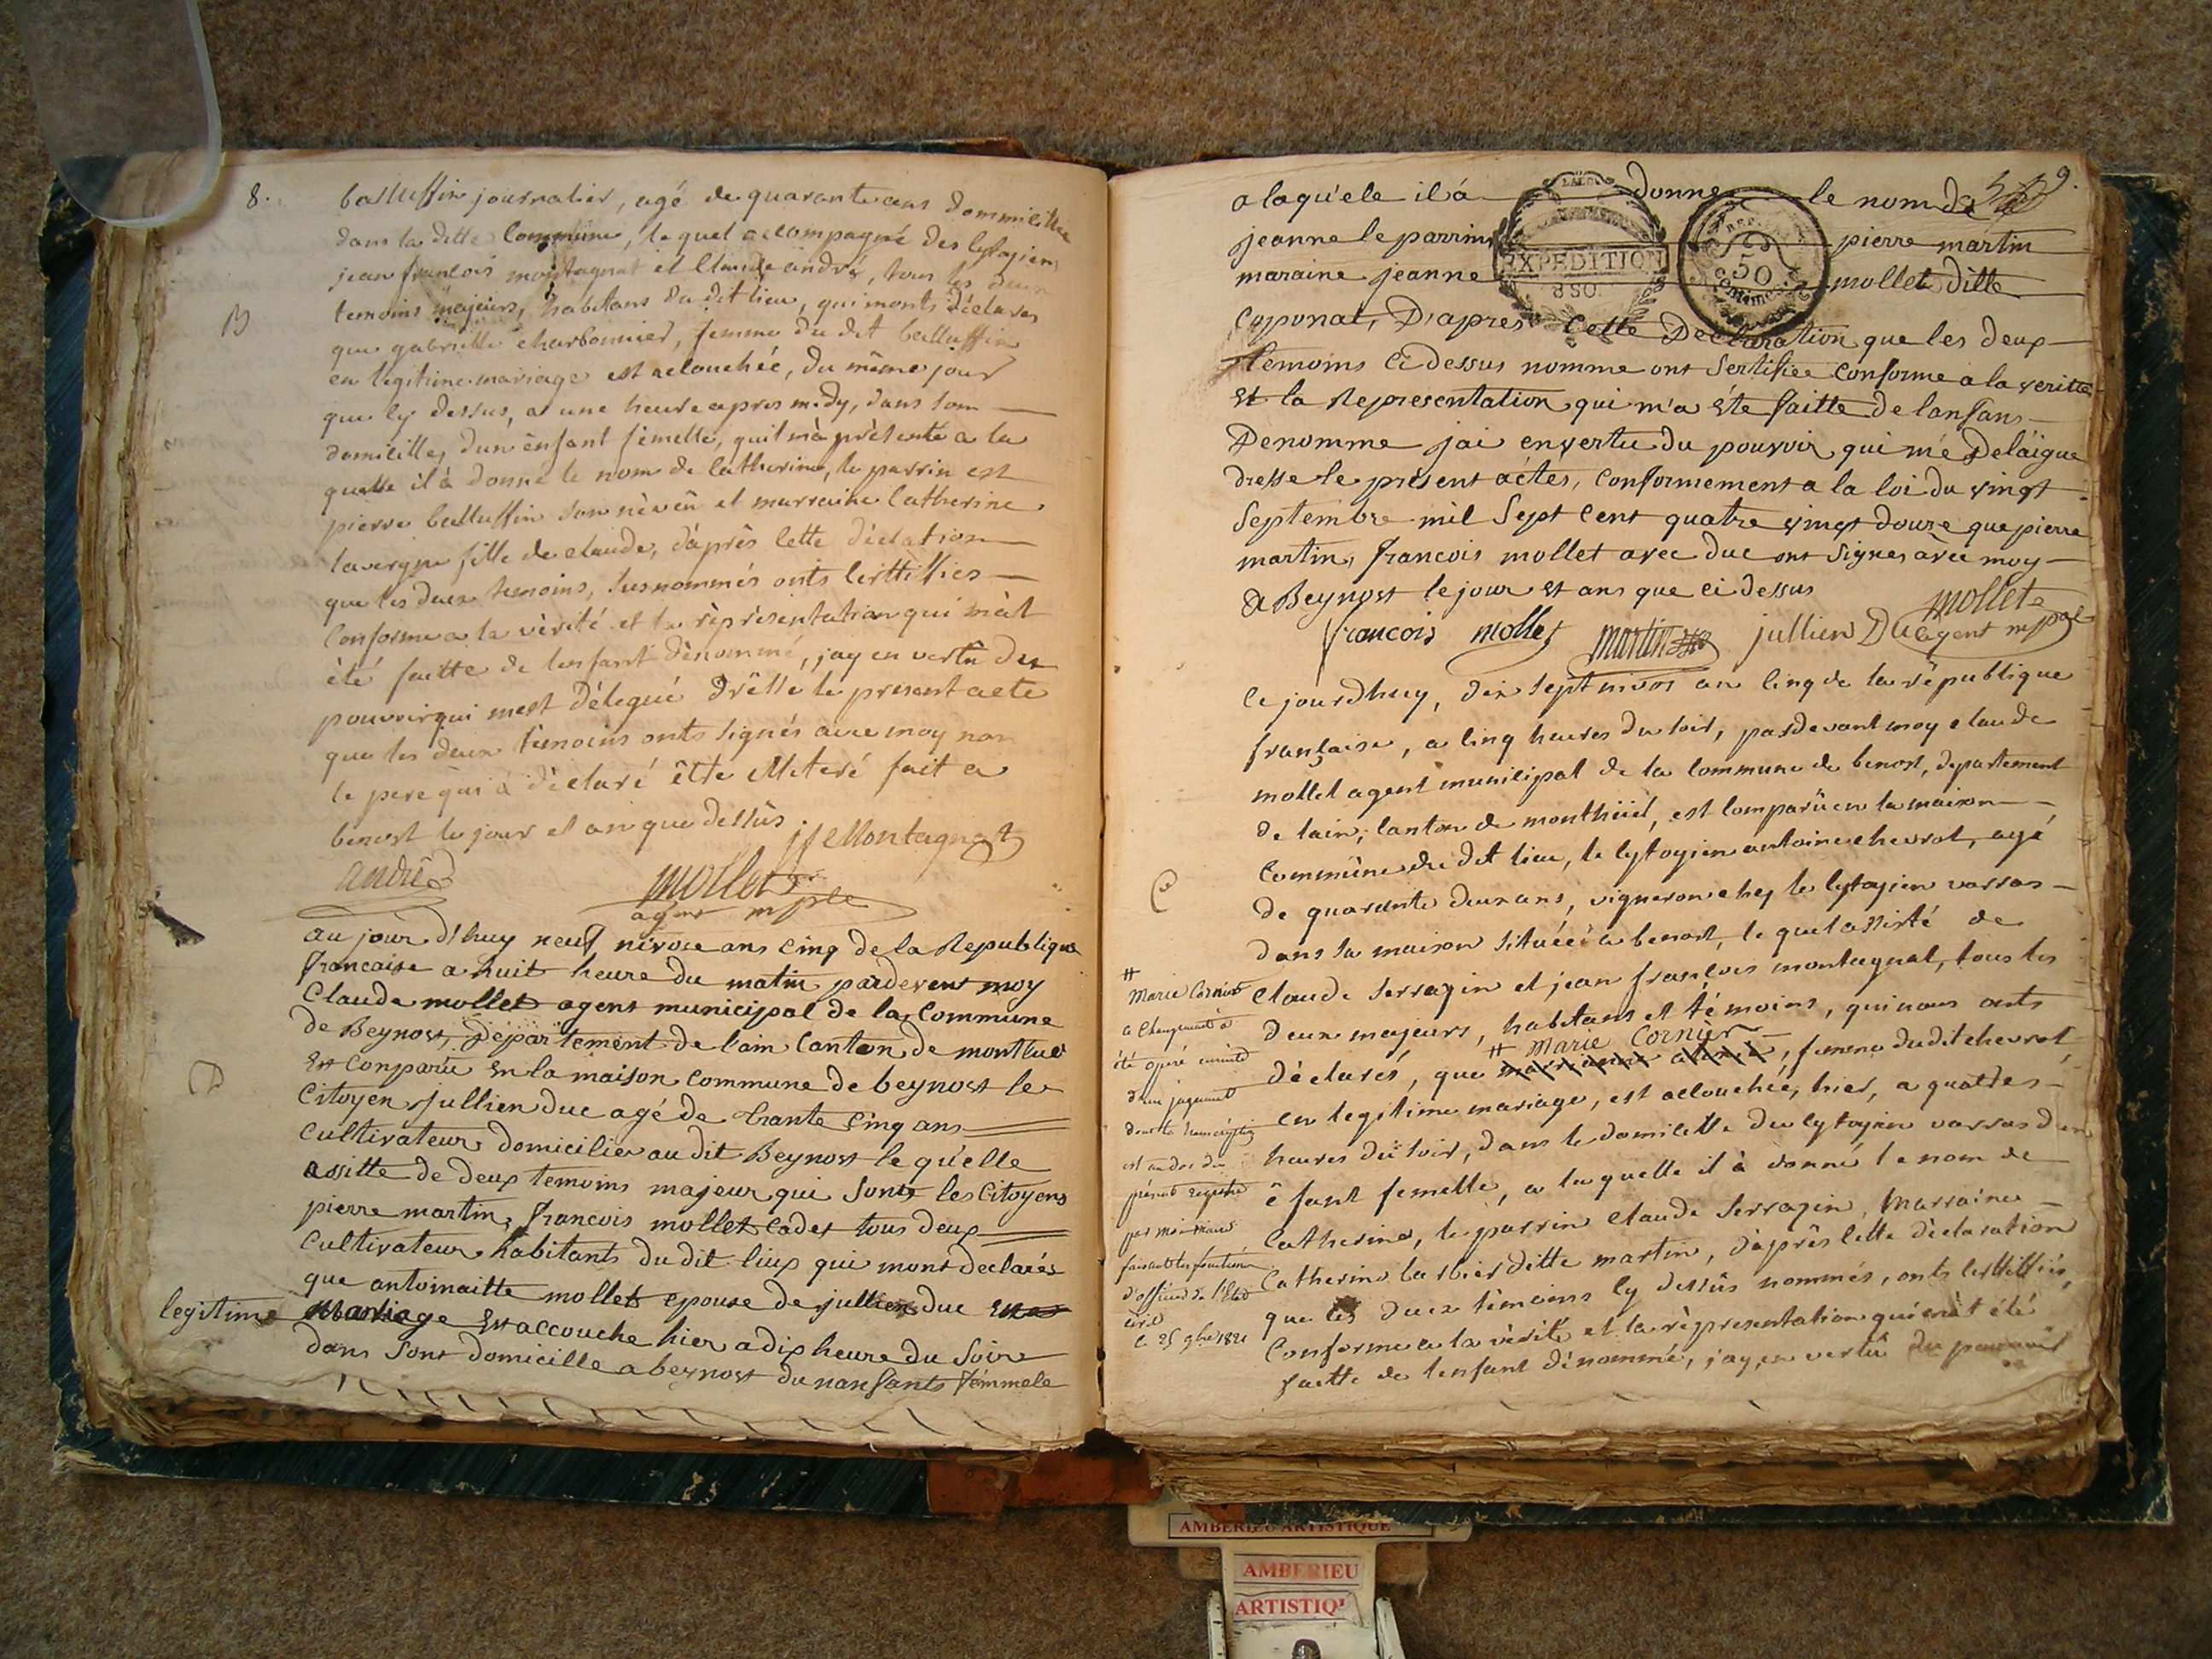 8.
balluffin journalier, agé de quarante ans dommicillié
dans la ditte Commune, le quel accompagné des cytoyiens
jean françois montagnat et Claude andré, tous les deux
temoins majeurs, habitans du dit lieu, qui monts déclarés
B
que gabrielle charbonnier, femme du dit balluffin
en legitime mariage est acouchée, du même jour
que cy dessus, a une heure apres midy, dans som
domicilles d'un ênfant femelle, quil m'à présenté a la
quelle il à donné le nom de Catherine, le parrin est
pierre balluffin son nèvêu et marraine Catherine
lavergne fille de claude, d'après cette déclation
que les deux temoins, susnommés onts certtiffiés
Conforme a la vèrité et la rèprèsentation qui m'àt
èté faitte de lenfant dénommé, jay en vertû du
pouvoir qui mest délegué drêssé le present acte
que les deux témoins onts signés avec moy non
le pere qui à déclaré être illiteré fait a
benost le jour et an que dessûs
jf Montagnat
andré
mollet
agent mple
au jour d'huy neuf nivose ans cinq de la Republique
francaise a huit heure du matin pardevent moy
Claude mollet agent municipal de la Commune
de Beynost, Département de lain Canton de montluel
D
est Conparu en la maison Commune de beynost le
Citoyen jullien duc agé de trante cinq ans
Cultivateur domicilier au dit Beynost le qu'elle
assitte de deux temoins majeur qui sont les Citoyens
pierre martin, francois mollet cadet tous deux
Cultivateur habitants du dit lieux qui mont declarés
que antoinaitte mollet epouse de jullien duc en
legitime Mariage est accouche hier a dix heure du Soir
dans sont domicille a beynost du nanfants fémmele
9.
a laqu'ele il à donne le nom de
jeanne le parrin pierre martin
maraine jeanne mollet ditte
EXPEDITION
50
Coponat, D'apres Cette Declaration que les deux
temoins Ci dessus nomme ont Sertifiee Conforme a la verite
et la Representation qui m'a éte faitte de lanfans
Denomme jai en vertu du pouvoir qui m'é Delaigue
dresse le présent actes, Conformement a la loi du vingt
Septembre mil Sept Cent quatre vingt douze que pierre
martin, francois mollet avec duc ont Signes avec moy
a Beynost le jour et ans que ci dessus
francois mollet martin jullien Duc mollet
agent mpal
Ce jourdhuy, dix sept nivos an cinq de la république
française, a cinq heures du soir, pardevant moy claude
mollet agent municipal de la Commune de benost, departement
de lain, Canton de montluel, est Comparû en la maison
Commûne du dit lieu, le cytoyien antoine chevrot, agé
C
de quarante deux ans, vigneron chez le cytoyien vassas
dans sa maison située a benost, le quel assisté de
claude Serrazin et jean françois montagnat, tous les
deux majeurs, habitans et témoins, qui nous onts
# Marie Cornier
déclarés, que , femme du dit chevrot
en legitime mariage, est acouchée, hier, a quattres
heures du soir, dans le domicille du cytoyien vassas d'un
ênfant femelle, a la quelle il à donné le nom de
Catherine, le parrin claude Serrazin, Marraine
Catherine barbier ditte martin, d'après cette déclaration
que les deux témoins cy dessûs nommés, onts certtiffiés,
Conforme a la vèrité et la rèpresentation qui m'àt été
faitte de lenfant dénommé, jay, en vertû du pouvoir
#
Marie Cornier
Ce Changement a
été opéré ensuite
d'un jugement
dont la transcription
est au dos du
présent registre
par moi maire
faisant les fonctions
d'officier de l'État
civil
le 25 9bre 1821
AMBERIEU ARTISTIQUE
AMBERIEU
ARTISTIQ